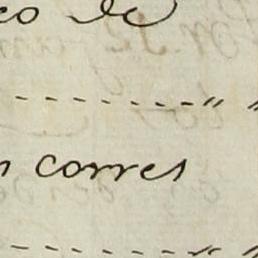 co de
-------- " "
n corres
-------- " "